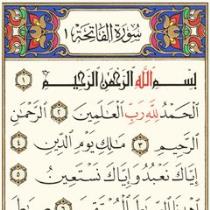 سُورَةُ الفَاتِحَةِ ١
بِسْمِ اللَّهِ الرَّحْمَٰنِ الرَّحِيمِ ١
الْحَمْدُ لِلَّهِ رَبِّ الْعَالَمِينَ ٢ الرَّحْمَٰنِ
الرَّحِيمِ ٣ مَالِكِ يَوْمِ الدِّينِ ٤
إِيَّاكَ نَعْبُدُ وَإِيَّاكَ نَسْتَعِينُ ٥